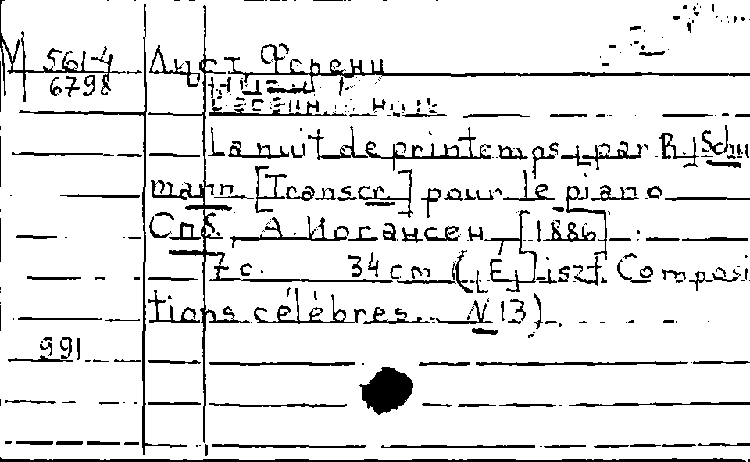 М 561-4 Лист, Ференц
6798
La nuit de printemps, par R. Schu
mann. [Transcr.] pour le piano
Спб., А. Иогансен, [1886].
7 с. 34 cm (F. Liszt. Composi
tions célèbres... N 13).
991